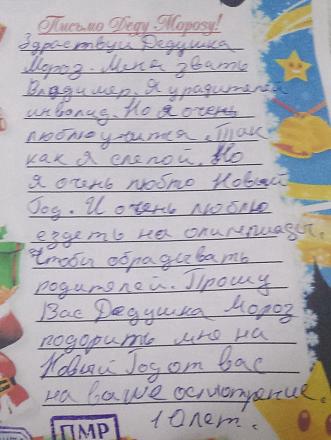 Письмо Деду Морозу!
Здраствуй Дедушка
Мороз. Меня звать
Владимер. Я урадителей
инвалид. Но я очень
люблю учится. Так
как я слепой. Но
я очень люблю Новый
Год. И очень люблю
ездеть на олимпиады.
Чтобы обрадывать
родителей. Прошу
Вас Дедушка Мороз
подорить мне на
Новый Год от вас
на ваше
10 лет.
ПМР